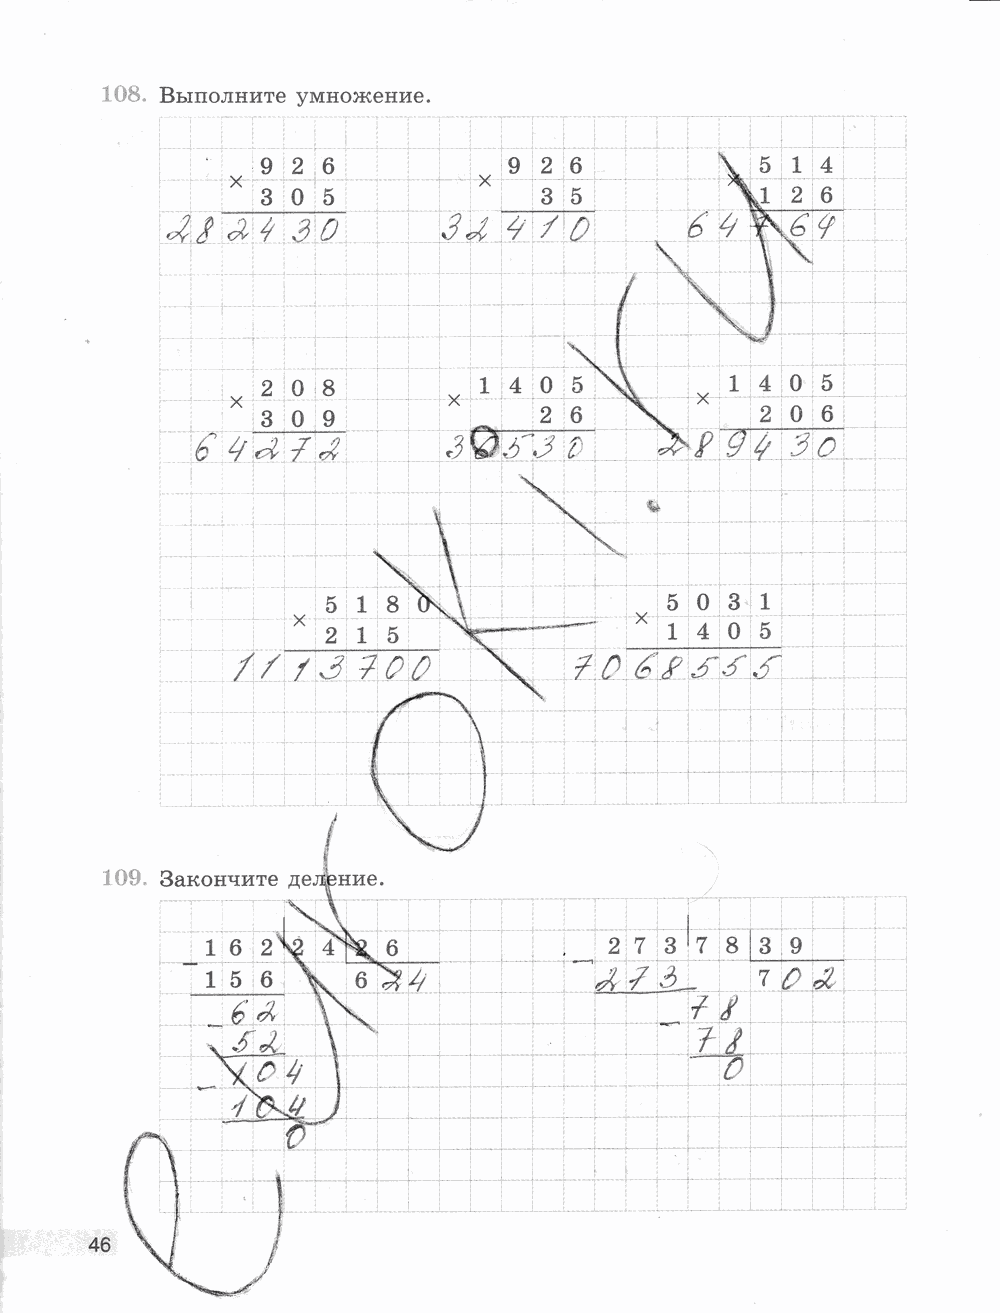 108. Выполните умножение.
× 926 × 926 × 514
305 35 126
282430 32410 64764
× 208 × 1405 × 1405
309 26 206
64272 36530 289430
× 5180 × 5031
215 1405
1113700 7068555
109. Закончите деление.
- 162 24 26 - 273 78 39
156 624 273 702
- 62 - 78
52 78
- 104 0
104
0
46